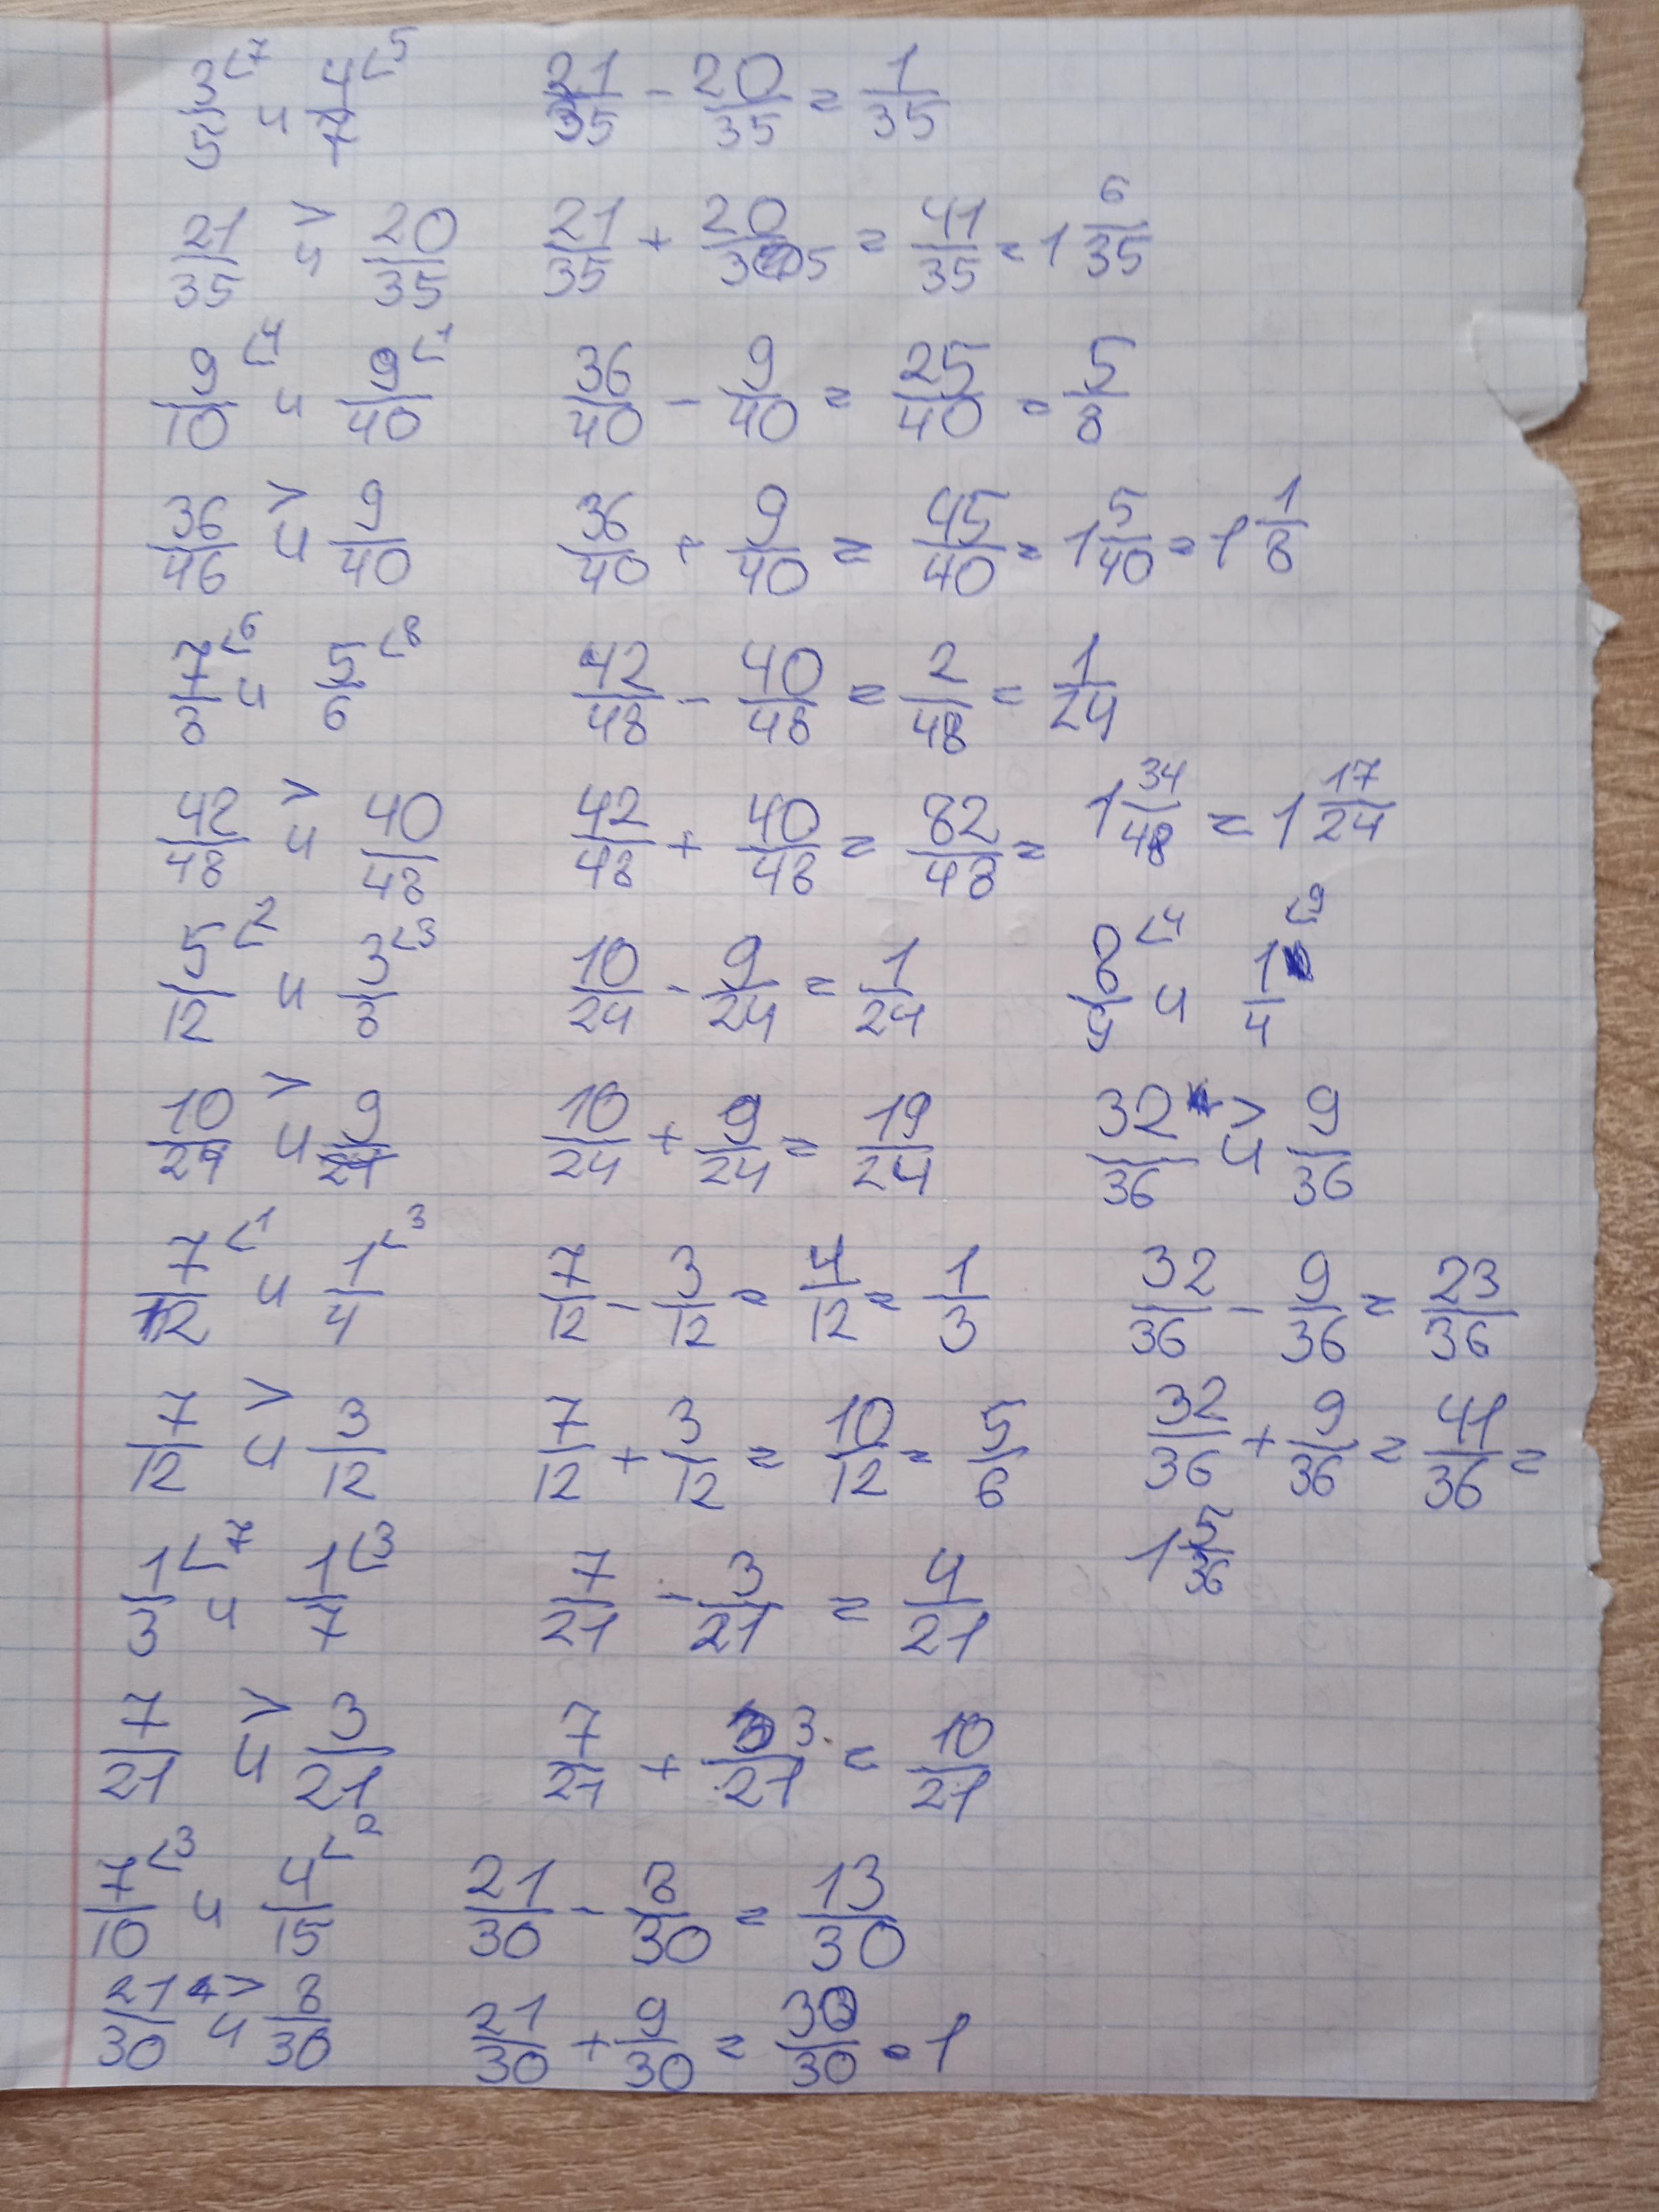 3/5 ∠7 и 4/7 ∠5   21/35 - 20/35 = 1/35
21/35 > и 20/35   21/35 + 20/35 = 41/35 = 1 6/35
9/10 ∠4 и 9/40 ∠1   36/40 - 9/40 = 25/40 = 5/8
36/46 > и 9/40   36/40 + 9/40 = 45/40 = 1 5/40 = 1 1/8
7/8 ∠6 и 5/6 ∠8   42/48 - 40/48 = 2/48 = 1/24
42/48 > и 40/48   42/48 + 40/48 = 82/48 = 1 34/48 = 1 17/24
5/12 ∠2 и 3/8 ∠3   10/24 - 9/24 = 1/24   8/9 ∠4 и 1/4 ∠9
10/24 > и 9/24   10/24 + 9/24 = 19/24   32/36 > и 9/36
7/12 ∠1 и 1/4 ∠3   7/12 - 3/12 = 4/12 = 1/3   32/36 - 9/36 = 23/36
7/12 > и 3/12   7/12 + 3/12 = 10/12 = 5/6   32/36 + 9/36 = 41/36 =
1/3 ∠7 и 1/7 ∠3   7/21 - 3/21 = 4/21   1 5/36
7/21 > и 3/21   7/21 + 3/21 = 10/21
7/10 ∠3 и 4/15 ∠2   21/30 - 8/30 = 13/30
21/30 > и 8/30   21/30 + 9/30 = 30/30 = 1